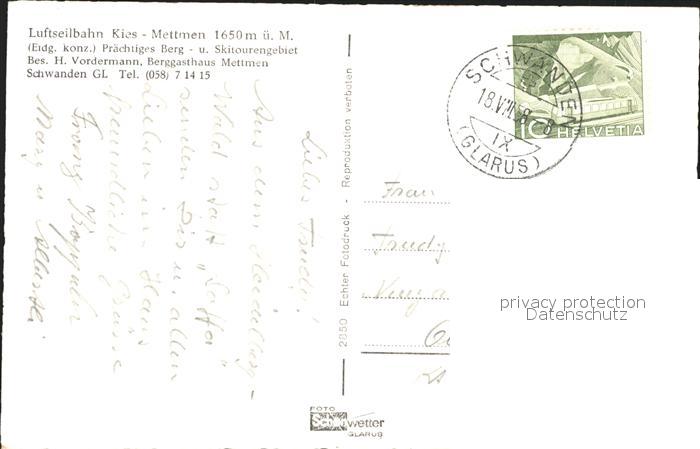 Luftseilbahn Kies - Mettmen 1650 m ü. M.
(Eidg. konz.) Prächtiges Berg - u. Skitourengebiet
Bes. H. Vordermann, Berggasthaus Mettmen
Schwanden GL Tel. (058) 7 14 15
Liebe Trudy!
Aus dem
Wald statt "Saffa"
senden Dir u. allen
Lieben im Haus
freundliche Grüsse
Franz
Mary u.
2850 Echter Fotodruck - Reproduktion verboten
SCHWANDEN
18.VIII.58 - 8
IX
(GLARUS)
10 HELVETIA
Frau
Trudy
privacy protection
Datenschutz
FOTO
Schönwetter
GLARUS